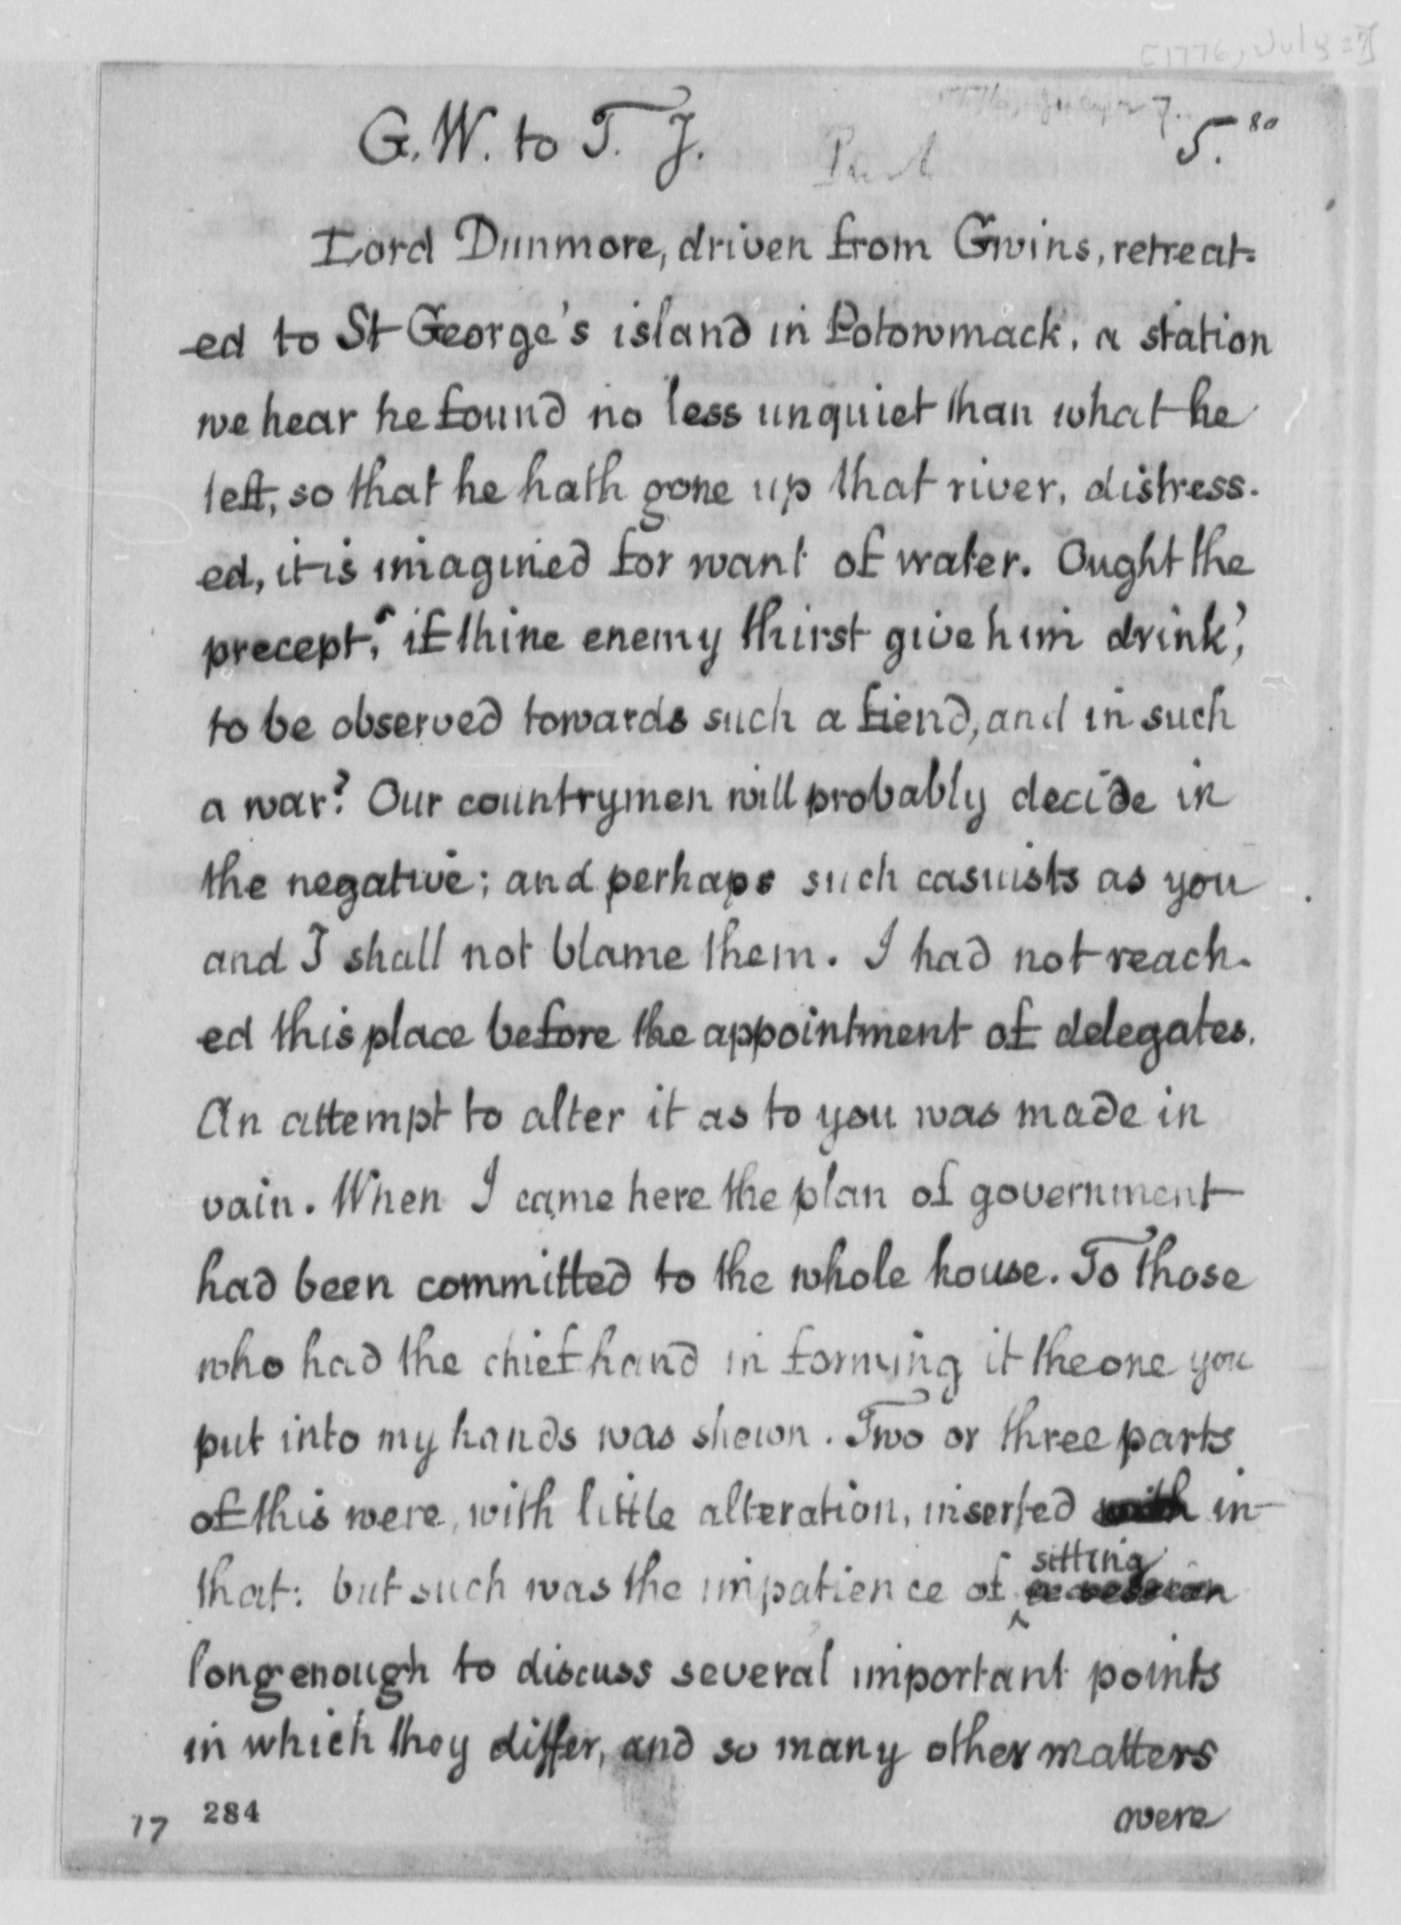 G. W. to T. J. 5. 80
Lord Dunmore, driven from Gwins, retreat-
ed to St George's island in Potowmack, a station
we hear he found no less unquiet than what he
left, so that he hath gone up that river, distress-
ed, it is imagined for want of water. Ought the
precept, 'if thine enemy thirst give him drink',
to be observed towards such a fiend, and in such
a war? Our countrymen will probably decide in
the negative; and perhaps such casuists as you
and I shall not blame them. I had not reach-
ed this place before the appointment of delegates.
An attempt to alter it as to you was made in
vain. When I came here the plan of government
had been committed to the whole house. To those
who had the chief hand in forming it the one you
put into my hands was shewn. Two or three parts
of this were, with little alteration, inserted with in
that: but such was the impatience of sitting
long enough to discuss several important points
in which they differ, and so many other matters
were
17 284